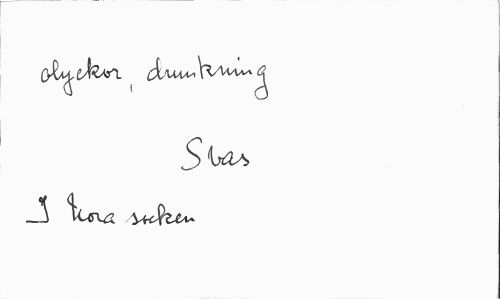 olyckor, drunkning
Svas
I Nora socken